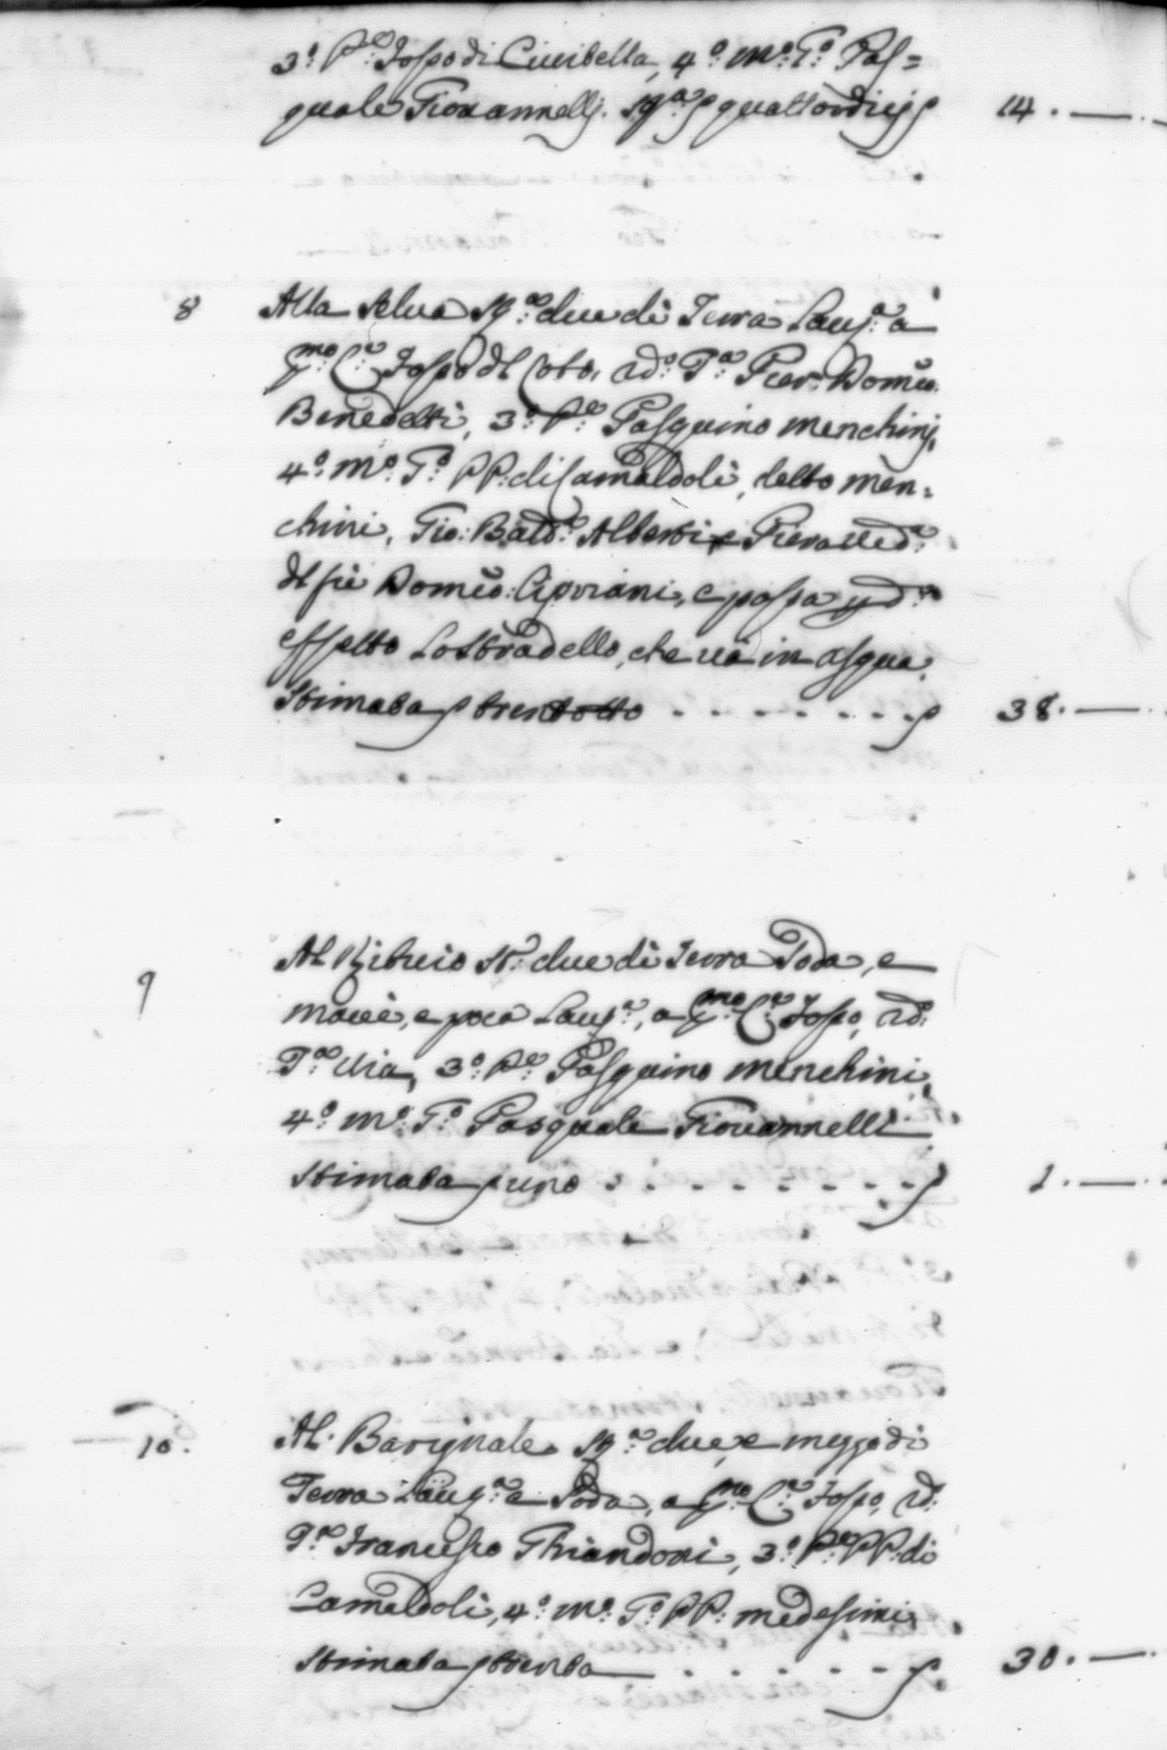 3.° P.e Fosso di Civitella, 4.° M.° T.° Pas=
quale Giovannellj. quattordicj 14. —
8 Alla Selva St.a due di Terra Lau.a a
P.mo C.e Fosso del Coto, 2d.° T.a Pier: Domco.
Benedetti, 3.° P.e Pasquino Menchinj,
4.° M.° T.° PP: di Camaldoli, detto Men=
chini, Gio: Batt.a Alberti e Piera Ved.a
del fù Domco: Cipriani, e passa p d.o
effetto Lo Stradello, che và in acqua,
Stimata trentotto - - - - - - - 38. —
9 Al St.a due di Terra Soda, e
e poca Lau.a, a P.mo C.e Fosso, 2d.°
T.a Via, 3.° P.e Pasquino Menchini,
4.° M.° T.° Pasquale Giovannelli
Stimata uno - - - - - - - - 1. —
10. Al St.a due, e mezzo di
Terra Lau.a e Soda, a P.mo C.e Fosso, 2d.
T.a Francesco Ghiandoni, 3.° P.e PP: di
Camaldoli, 4.° M.° T.° PP: medesimi
Stimata trenta - - - - - - 30. —